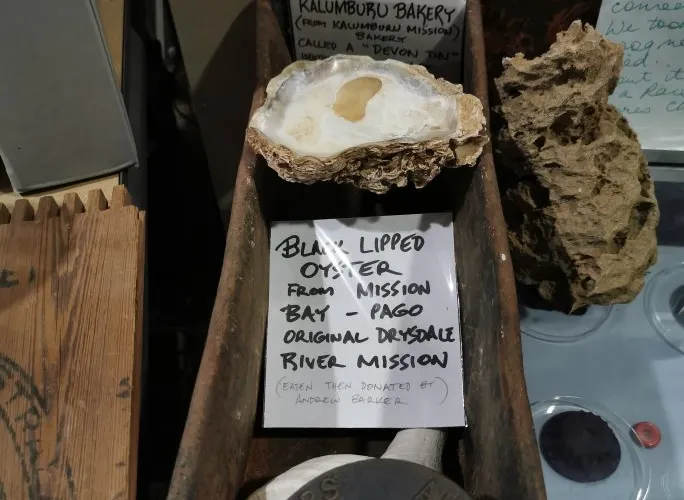 KALUMBURU BAKERY
(FROM KALUMBURU MISSION)
BAKERY
CALLED A "DEVON TIN"
BLACK LIPPED
OYSTER
FROM MISSION
BAY - PAGO
ORIGINAL DRYSDALE
RIVER MISSION
(EATEN THEN DONATED BY)
ANDREW BARKER
We too